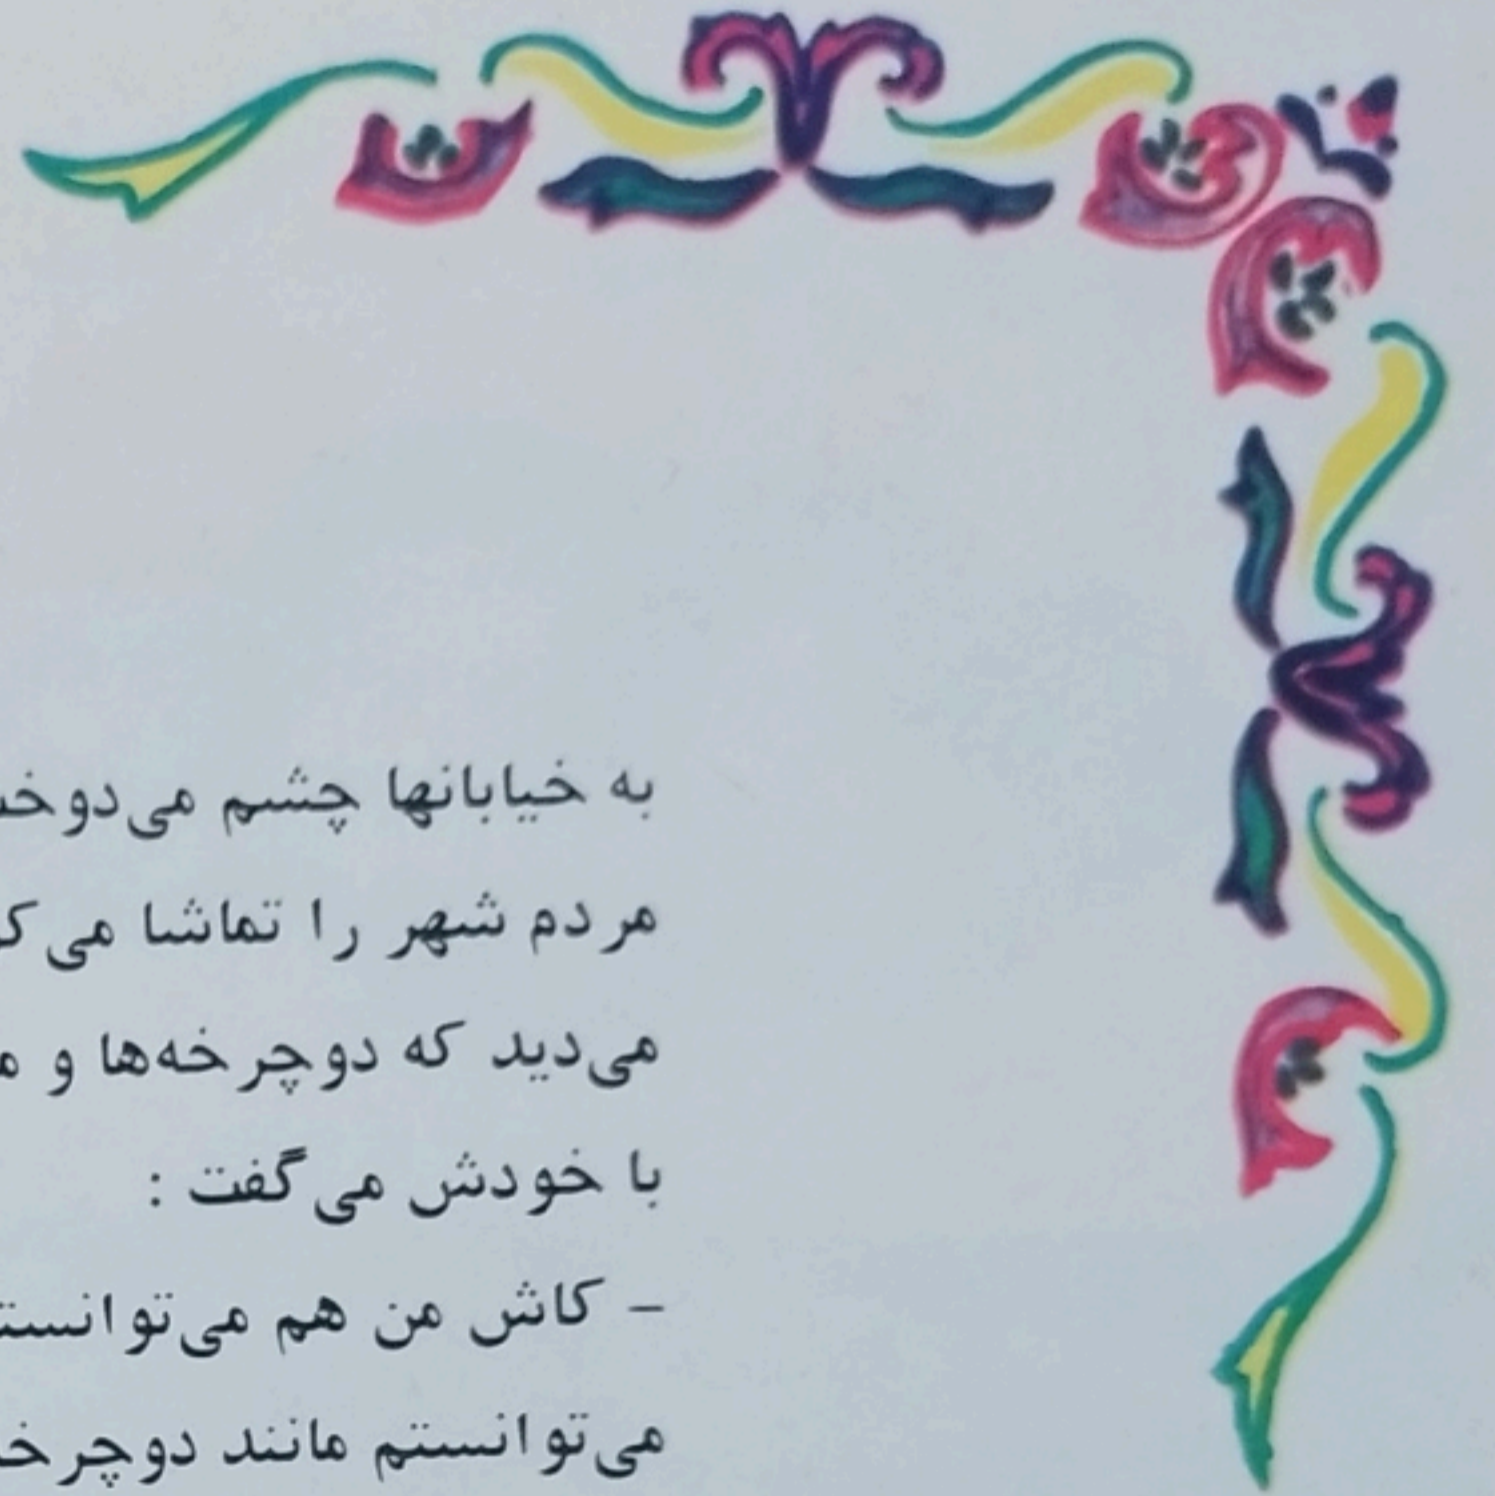 به خیابانها چشم می‌دوخ
مردم شهر را تماشا می‌ک
می‌دید که دوچرخه‌ها و م
با خودش می‌گفت :
- کاش من هم می‌توانست
می‌توانستم مانند دوچرخ